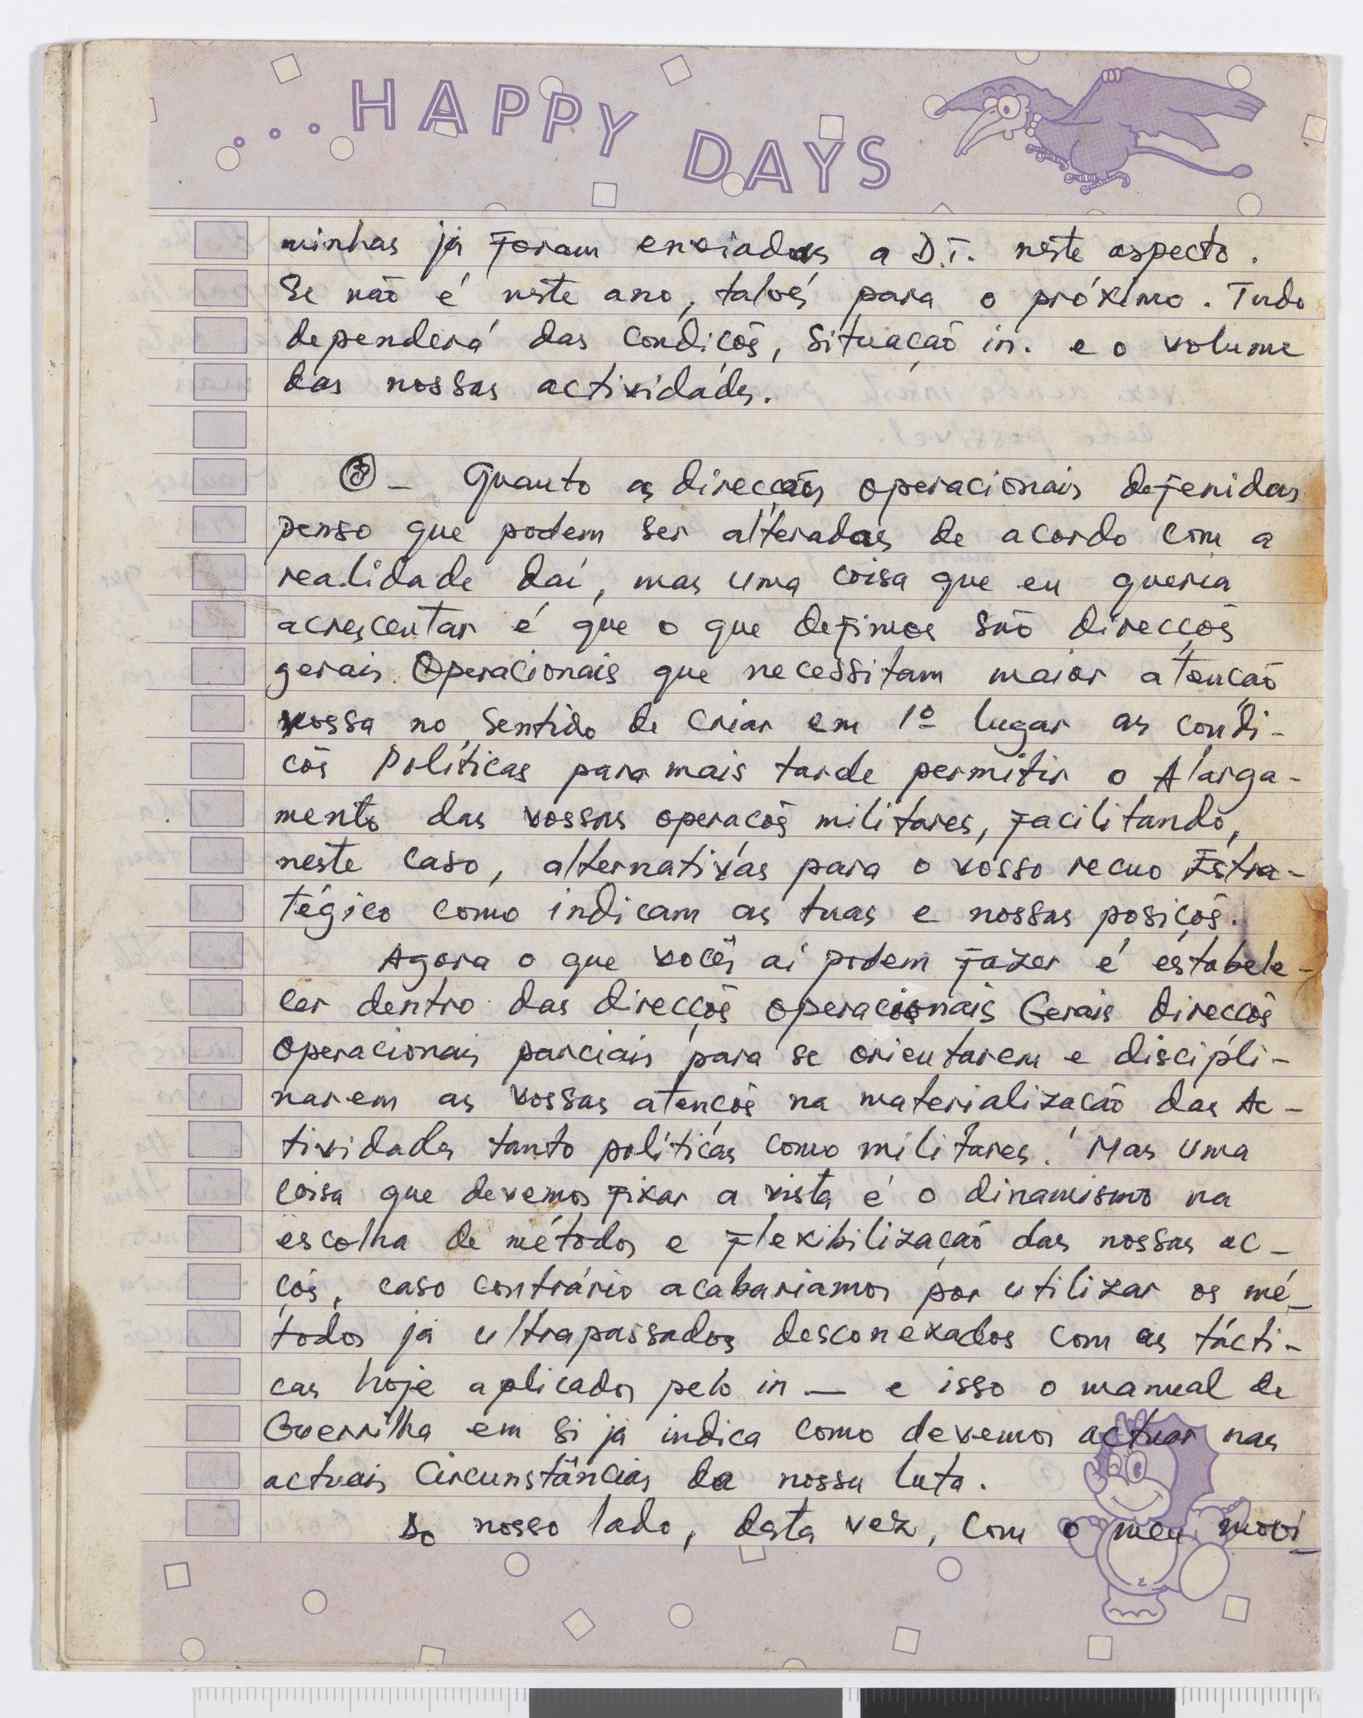 ...HAPPY DAYS
minhas já foram enviadas a D.T. neste aspecto.
Se não é neste ano, talvés para o próximo. Tudo
dependerá das condições, situação in. e o volume
das nossas actividades.
③ – Quanto as direcções operacionais defenidas
penso que podem ser alteradas de acordo com a
realidade daí, mas uma coisa que eu queria
acrescentar é que o que defimos são direcções
gerais Operacionais que necessitam maior atenção
vossa no sentido de criar em 1º lugar as condi-
cões Políticas para mais tarde permitir o Alarga-
mento das vossas operacões militares, facilitando,
neste caso, alternativas para o vosso recuo Estra-
tégico como indicam as tuas e nossas posições.
Agora o que vocês aí podem fazer é estabele-
cer dentro das direcções operacionais Gerais direccões
Operacionais parciais para se orientarem e discipli-
narem as vossas atencões na materialização das Ac-
tividades tanto políticas como militares. Mas uma
coisa que devemos fixar a vista é o dinamismo na
escolha de métodos e flexibilização das nossas ac-
cões, caso contrário acabariamos por utilizar os mé-
todos já ultrapassados desconexados com as tácti-
cas hoje aplicados pelo in — e isso o manual de
Guerrilha em si já indica como devemos actuar nas
actuais Circunstâncias da nossa luta.
Do nosso lado, desta vez, com o meu movi-